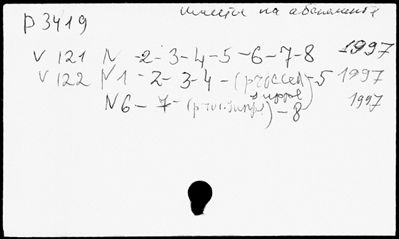 имеется на абонементе
P 3419
V 121 N -2-3-4-5-6-7-8 1997
V 122 N 1-2-3-4-(proceed)-5 1997
suppl
N 6-7-(proc. suppl)-8 1997